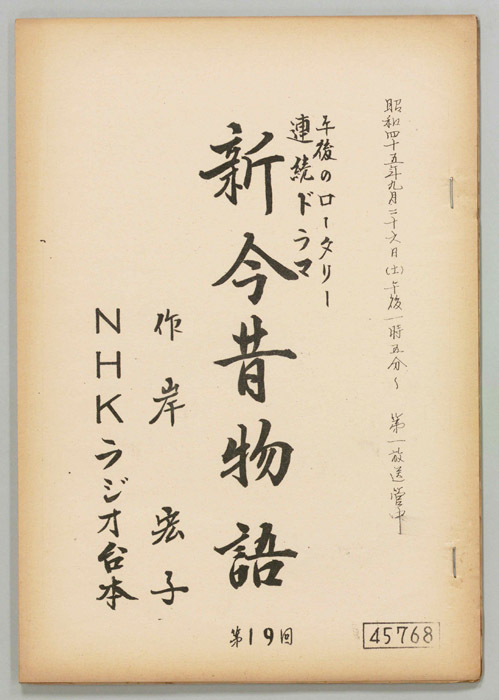 昭和四十五年九月二十六日(土)午後一時五分〜 第一放送管中
午後のロータリー
連続ドラマ
新今昔物語
作 岸 宏子
NHKラジオ台本
第19回
45768